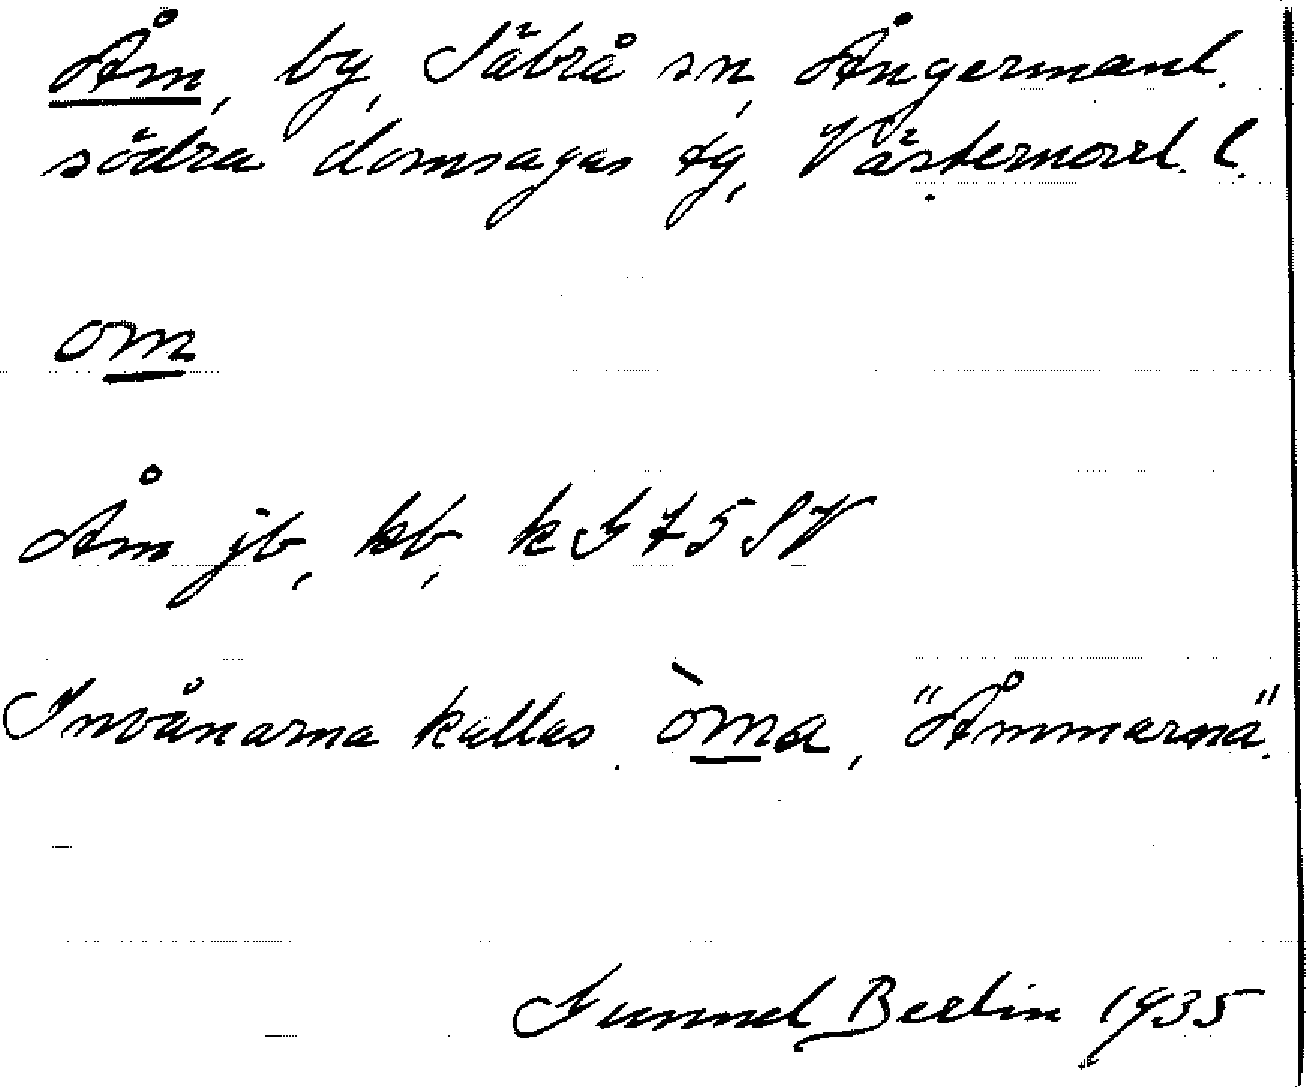 Åm, by, Säbrå sn, Ångermanl.
södra domsagas tg, Västernorrl. l.
om
Åm jb, kb, k G 75 SV
Invånarna kallas òma, "Åmmarna".
Gunnel Berlin 1935